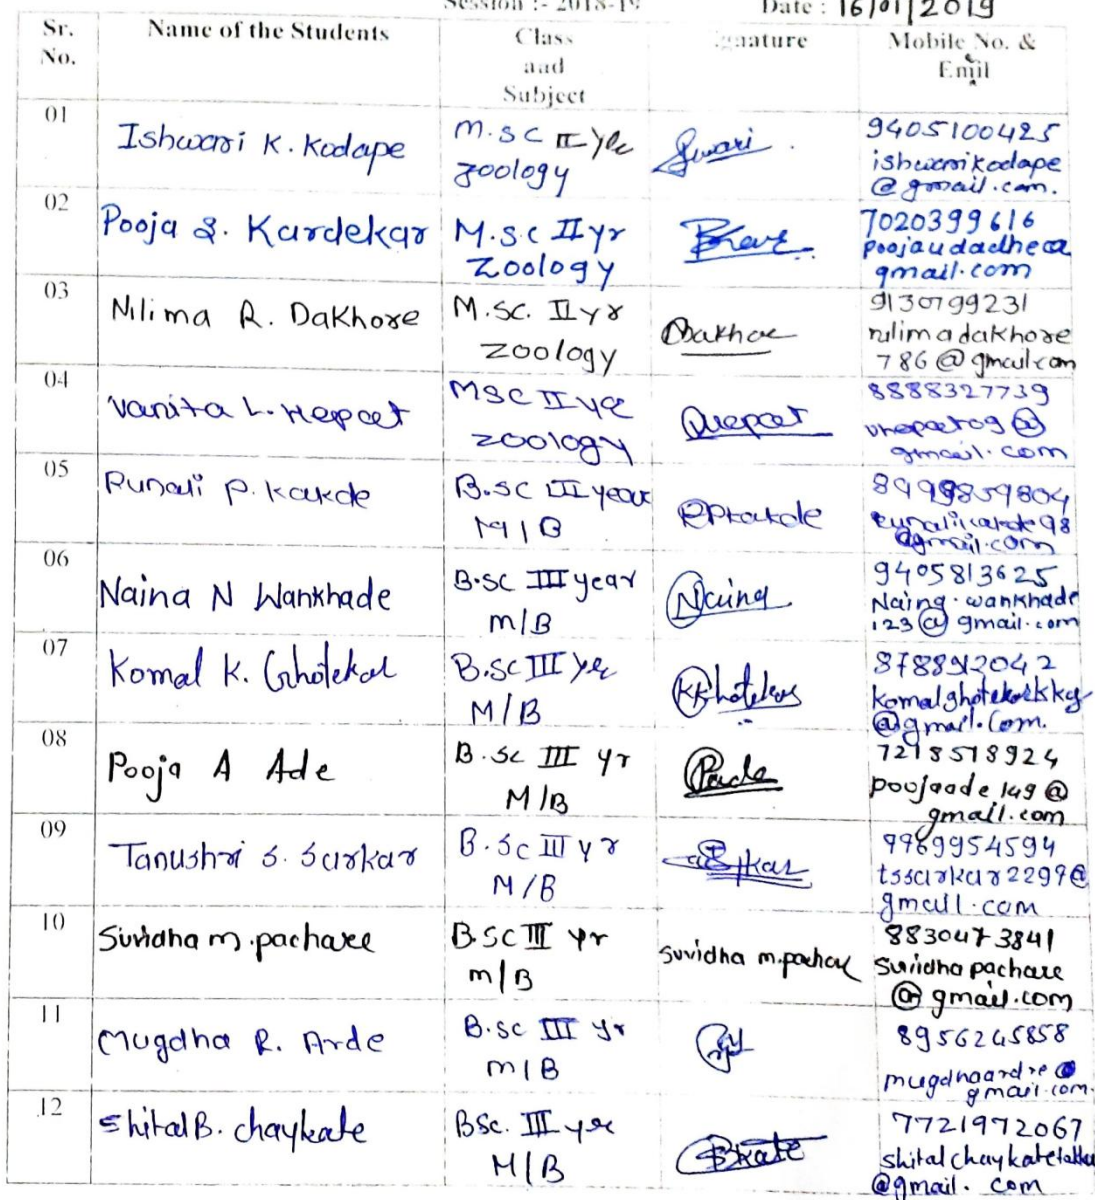 Session :- 2018-19 Date : 16/01/2019
Sr. No. Name of the Students Class and Subject Mobile No. &
01 Ishwari K. Kodape M.SC II Yr Zoology 9405100425
ishwarikodape
@gmail.com.
02 Pooja S. Kardekar M.S.C II yr Zoology 7020399616
gmail.com
03 Nilima R. Dakhore M.SC. II yr Zoology 9130799231
nilimadakhore
786@gmail.com
04 Vanita L. Hepat MSC II yr Zoology 8888327739
gmail.com
05 P. Kakde B.SC III year M/B
@gmail.com
06 Naina N Wankhade B.SC III year M/B Naina 9405813625
Naina.wankhade
123@gmail.com
07 Komal K. Ghotekar B.SC III yr M/B
@gmail.com.
08 Pooja A Ade B.SC III yr M/B 7218518924
poojaade149@
gmail.com
09 Tanushri S. Sarkar B.SC III yr M/B
tssarkar2299@
gmail.com
10 Suvidha m.pachare B.SC III yr m/B Suvidha m.pachare 8830473841
Suvidhapachare
@gmail.com
11 Mugdha R. Arde B.SC III yr m/B 8956245858
gmail.com.
12 Shital B. chaykate BSc. III yr M/B 7721972067
@gmail.com